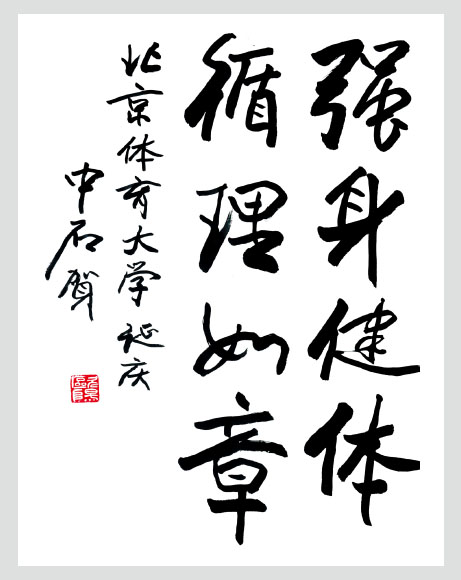 强身健体
循理如章
北京体育大学 延庆
中石贺